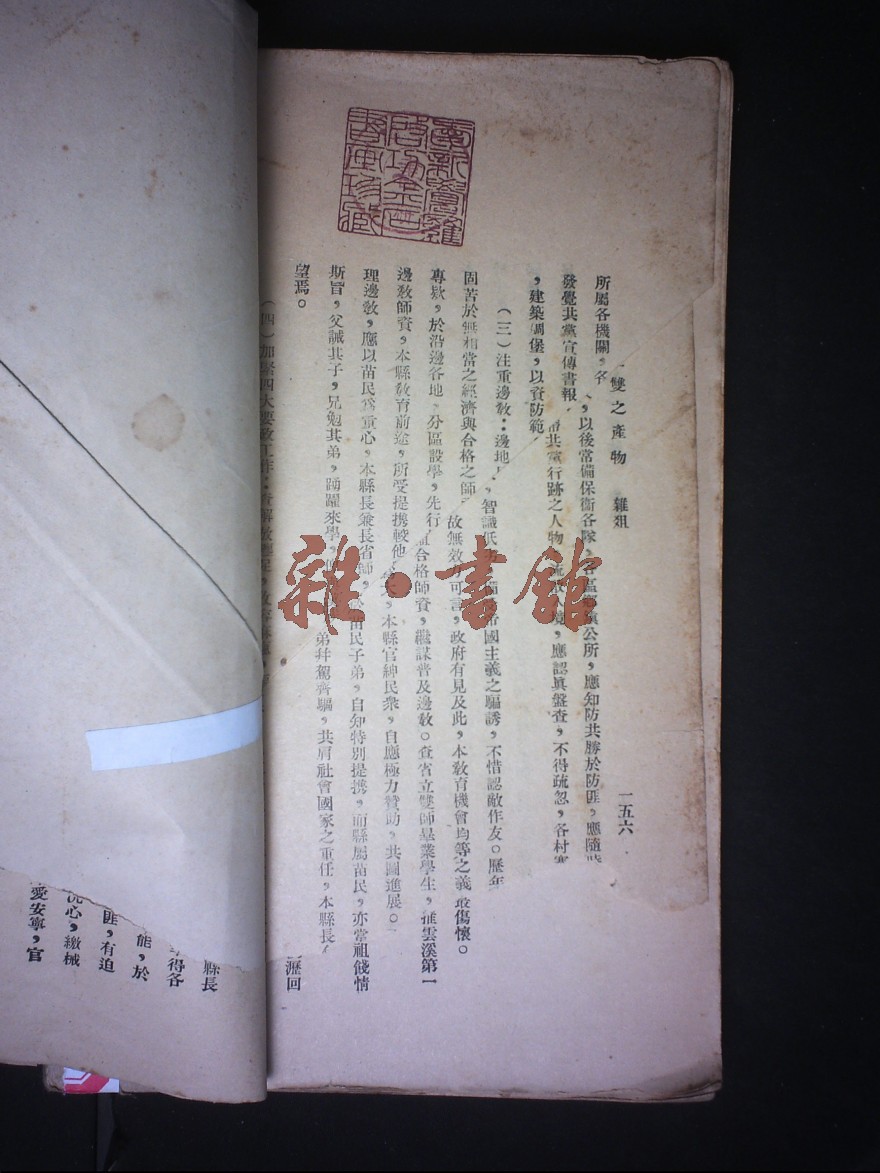 雙之產物　雜俎
一五六
所屬各機關，各
，以後常備保衞各隊，各區鄉鎮公所，應知防共勝於防匪，應隨時
發覺共黨宣傳書報，
共黨行跡之人物，應認眞盤查，不得疏忽，各村寨
，建築碉堡，以資防範，
（三）注重邊敎：邊地
，智識低
帝國主義之騙誘，不惜認敵作友。歷年
固苦於無相當之經濟與合格之師
故無效力可言，政府有見及此，本敎育機會均等之義
敢傷懷。
專欵，於沿邊各地，分區設學，先行
合格師資，繼謀普及邊敎。查省立雙師畢業學生，
雲溪第一
邊敎師資，本縣敎育前途，所受提携較他
大，本縣官紳民衆，自應極力贊助，共圖進展。
理邊敎，應以苗民爲重心，本縣長兼長省師，
苗民子弟，自知特別提携，而縣屬苗民，亦當
情
斯旨，父誡其子，兄勉其弟，踴躍來學，
弟幷駕齊驅，共肩社會國家之重任，本縣長
望焉。
瀝回
（四）加緊四大要政工作：
縣長
得各
能，於
匪，有迫
洗心，繳械
愛安寧，官
書庫珍藏
雜·書館